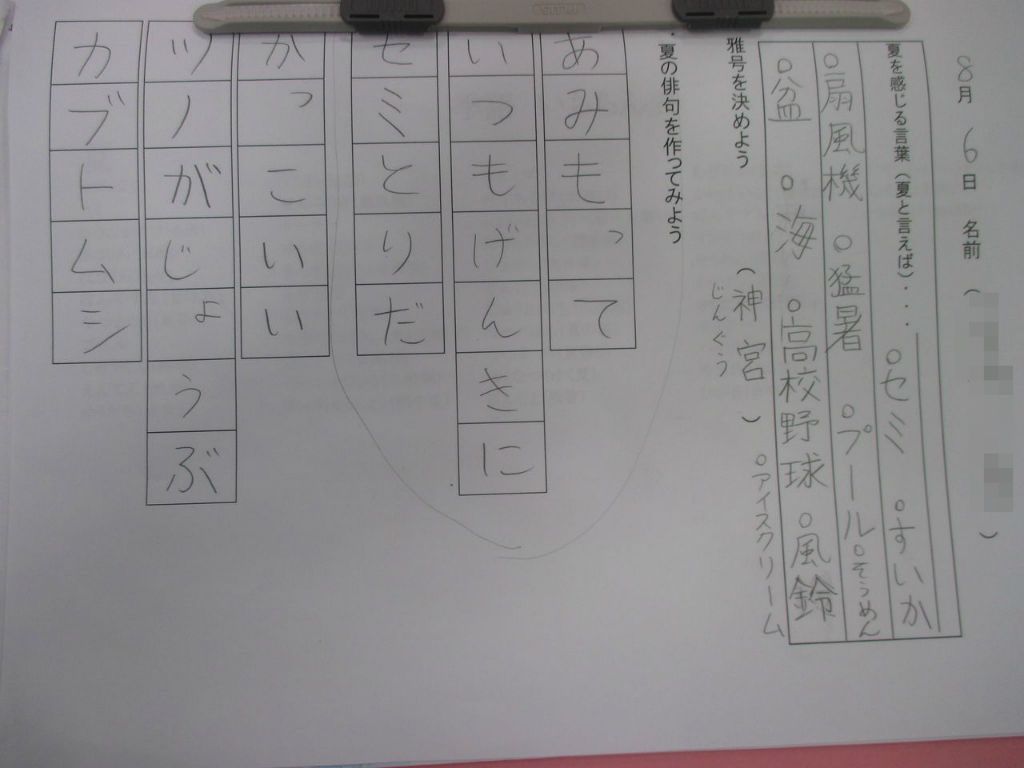 8月 6日 名前（ ）
夏を感じる言葉（夏と言えば）・・・
○セミ ○すいか
○扇風機 ○猛暑 ○プール ○そうめん
○盆 ○海 ○高校野球 ○風鈴
○アイスクリーム
雅号を決めよう （神宮）
じんぐう
・夏の俳句を作ってみよう
あみもって
いつもげんきに
セミとりだ
かっこいい
ツノがじょうぶ
カブトムシ